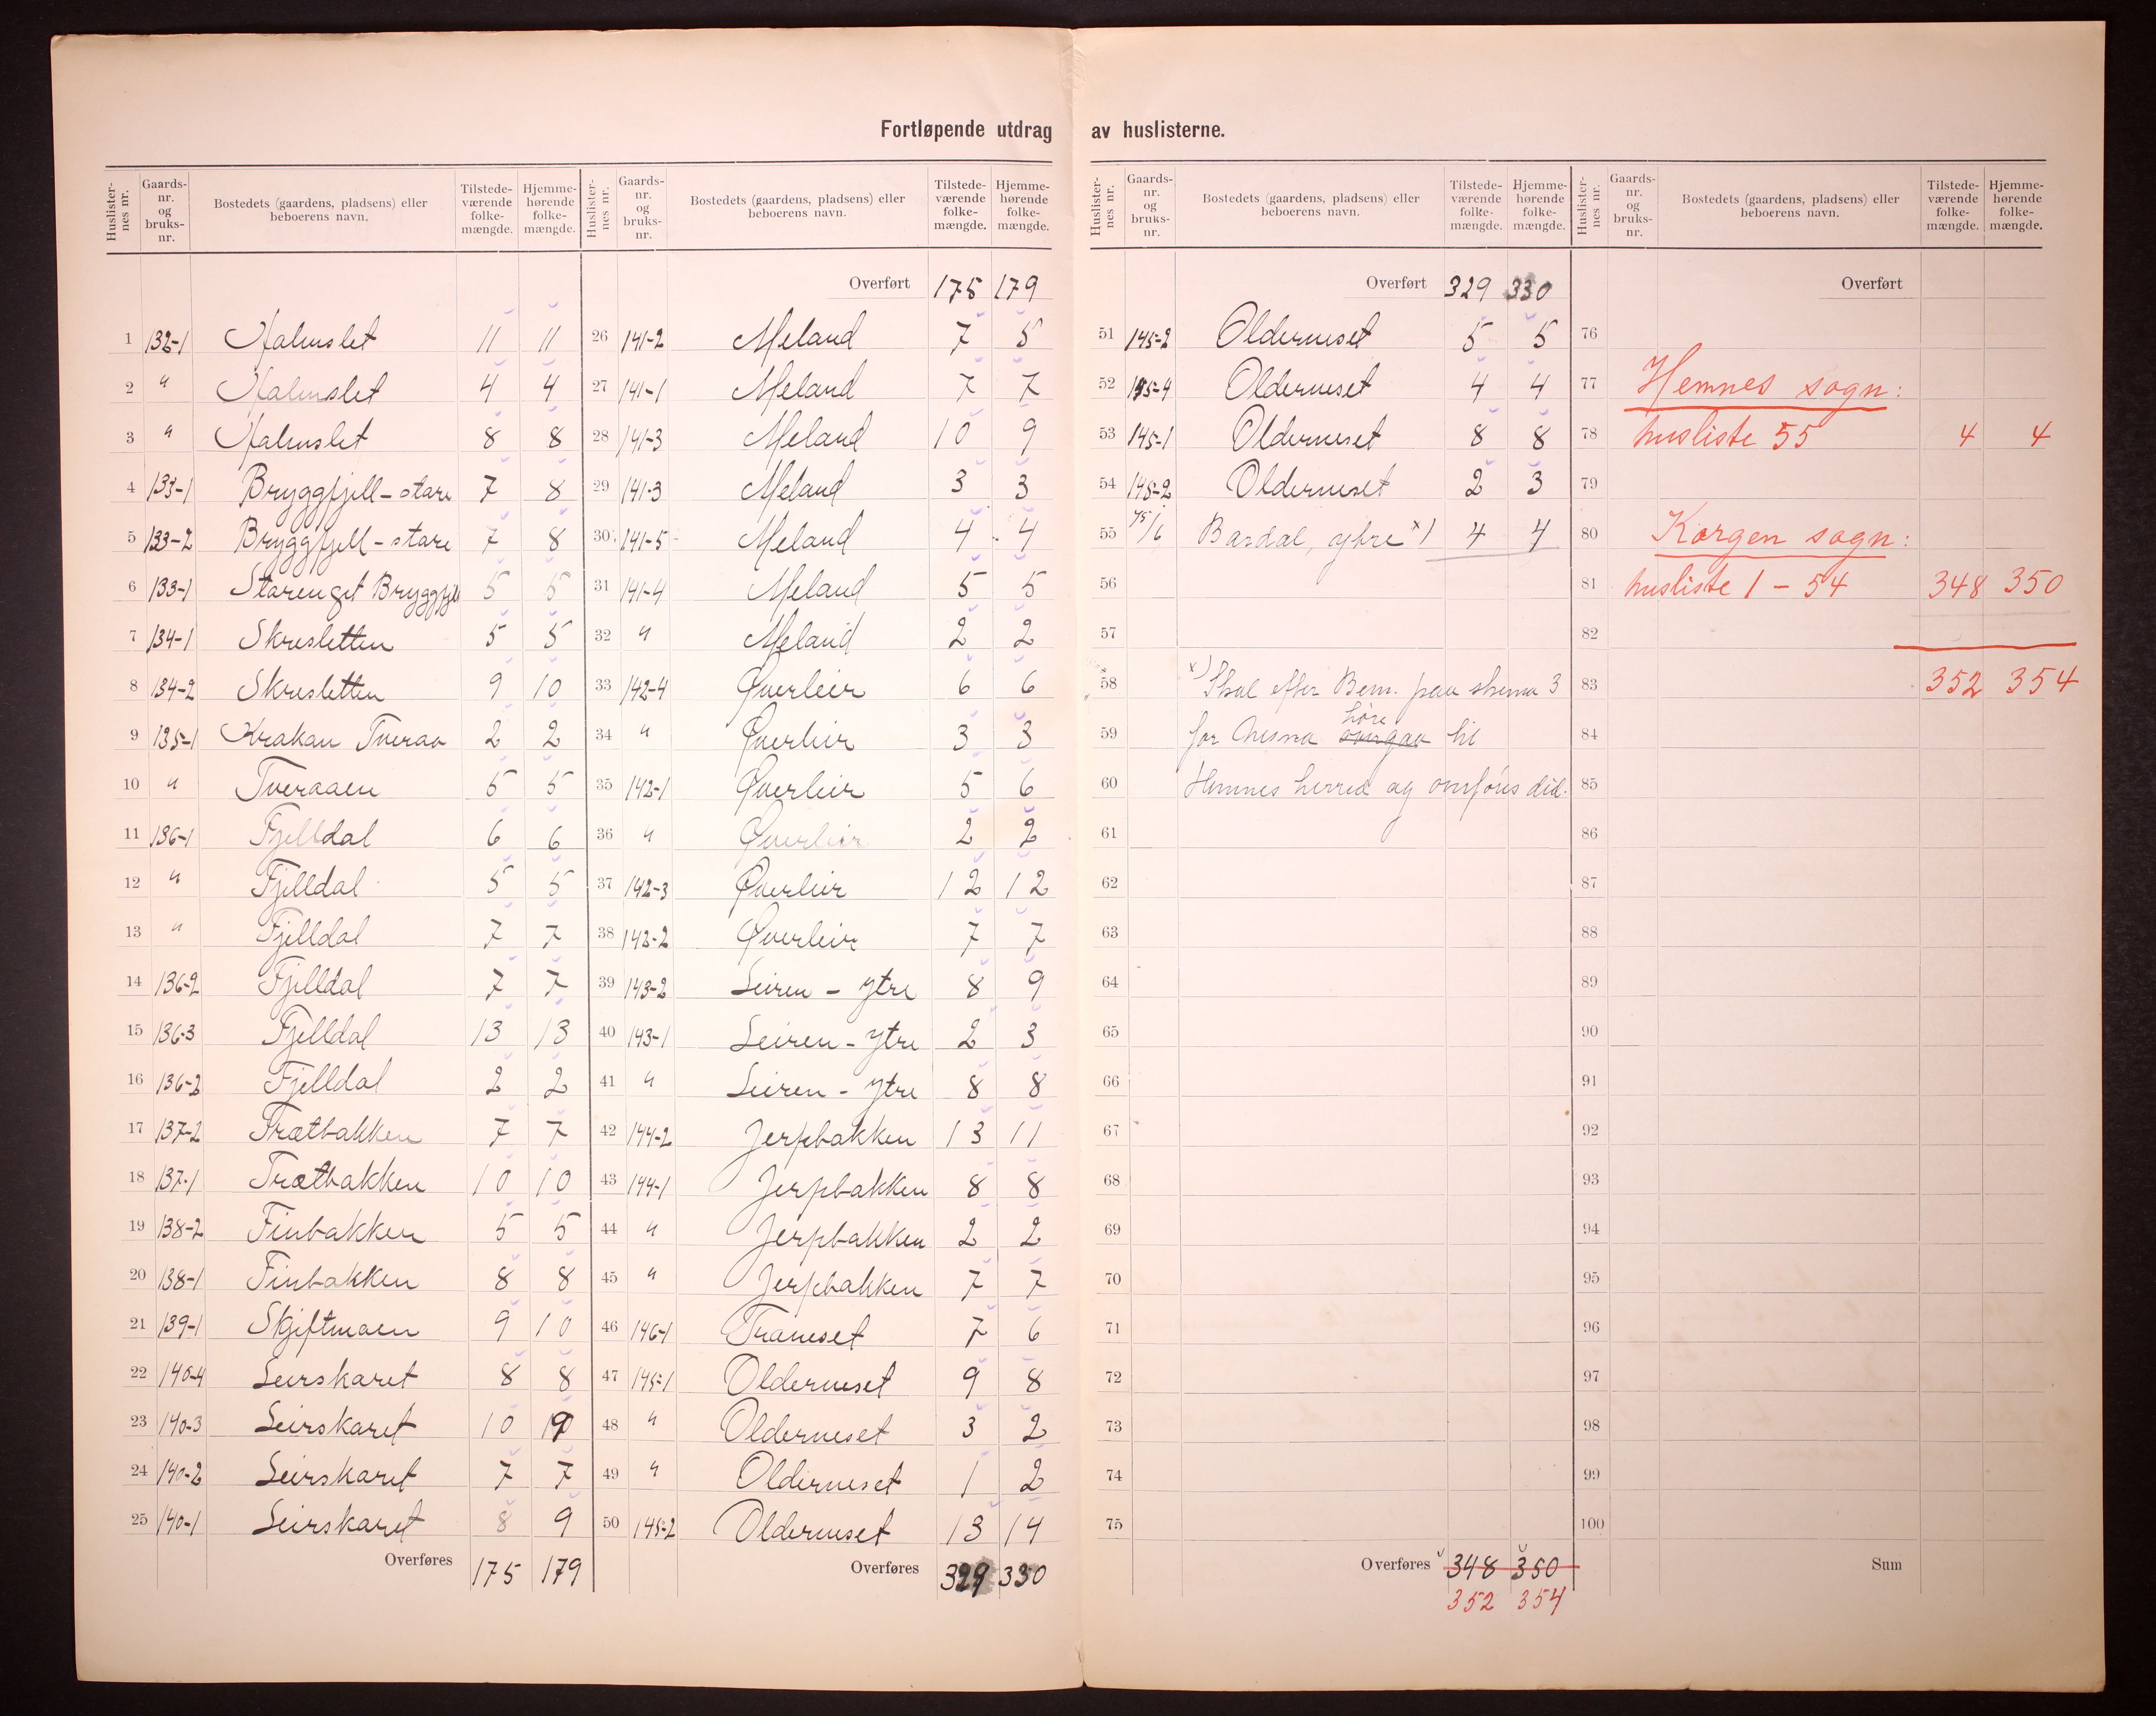 Fortløpende utdrag av huslisterne.
Huslister-nes nr. Gaards-nr. og bruks-nr. Bostedets (gaardens, pladsens) eller beboerens navn. Tilstede-værende folke-mængde. Hjemme-hørende folke-mængde.
1 132-1 Halmslet 11 11
2 " Halmslet 4 4
3 " Halmslet 8 8
4 133-1 Bryggfjell-store 7 8
5 133-2 Bryggfjell-store 7 8
6 133-1 Storenget Bryggfjell 5 5
7 134-1 Skresletten 5 5
8 134-2 Skresletten 9 10
9 135-1 Krokan Tveraa 2 2
10 " Tveraaen 5 5
11 136-1 Fjelldal 6 6
12 " Fjelldal 5 5
13 " Fjelldal 7 7
14 136-2 Fjelldal 7 7
15 136-3 Fjelldal 13 13
16 136-2 Fjelldal 2 2
17 137-2 Trætbakken 7 7
18 137-1 Trætbakken 10 10
19 138-2 Finbakken 5 5
20 138-1 Finbakken 8 8
21 139-1 Skjiftmoen 9 10
22 140-4 Leirskaret 8 8
23 140-3 Leirskaret 10 9
24 140-2 Leirskaret 7 7
25 140-1 Leirskaret 8 9
Overføres 175 179
Huslister-nes nr. Gaards-nr. og bruks-nr. Bostedets (gaardens, pladsens) eller beboerens navn. Tilstede-værende folke-mængde. Hjemme-hørende folke-mængde.
Overført 175 179
26 141-2 Meland 7 5
27 141-1 Meland 7 7
28 141-3 Meland 10 9
29 141-3 Meland 3 3
30 141-5 Meland 4 4
31 141-4 Meland 5 5
32 " Meland 2 2
33 142-4 Øverleir 6 6
34 " Øverleir 3 3
35 142-1 Øverleir 5 6
36 " Øverleir 2 2
37 142-3 Øverleir 12 12
38 142-2 Øverleir 7 7
39 143-2 Leiren - ytre 8 9
40 143-1 Leiren - ytre 2 3
41 " Leiren - ytre 8 8
42 144-2 Jerpbakken 13 11
43 144-1 Jerpbakken 8 8
44 " Jerpbakken 2 2
45 " Jerpbakken 7 7
46 146-1 Traneset 7 6
47 145-1 Olderneset 9 8
48 " Olderneset 3 2
49 " Olderneset 1 2
50 145-2 Olderneset 13 14
Overføres 329 330
Huslister-nes nr. Gaards-nr. og bruks-nr. Bostedets (gaardens, pladsens) eller beboerens navn. Tilstede-værende folke-mængde. Hjemme-hørende folke-mængde.
Overført 329 330
51 145-2 Olderneset 5 5
52 145-4 Olderneset 4 4
53 145-1 Olderneset 8 8
54 145-2 Olderneset 2 3
55 75/6 Bardal, ytre x) 4 4
56
57
58 x) Skal efter Bem. paa skema 3
59 for Nesna høre til
60 Hemnes herred og overføres did.
61
62
63
64
65
66
67
68
69
70
71
72
73
74
75
Overføres 348 350
352 354
Huslister-nes nr. Gaards-nr. og bruks-nr. Bostedets (gaardens, pladsens) eller beboerens navn. Tilstede-værende folke-mængde. Hjemme-hørende folke-mængde.
Overført
76
77 Hemnes sogn:
78 husliste 55 4 4
79
80 Korgen sogn:
81 husliste 1 - 54 348 350
82
83 352 354
84
85
86
87
88
89
90
91
92
93
94
95
96
97
98
99
100
Sum